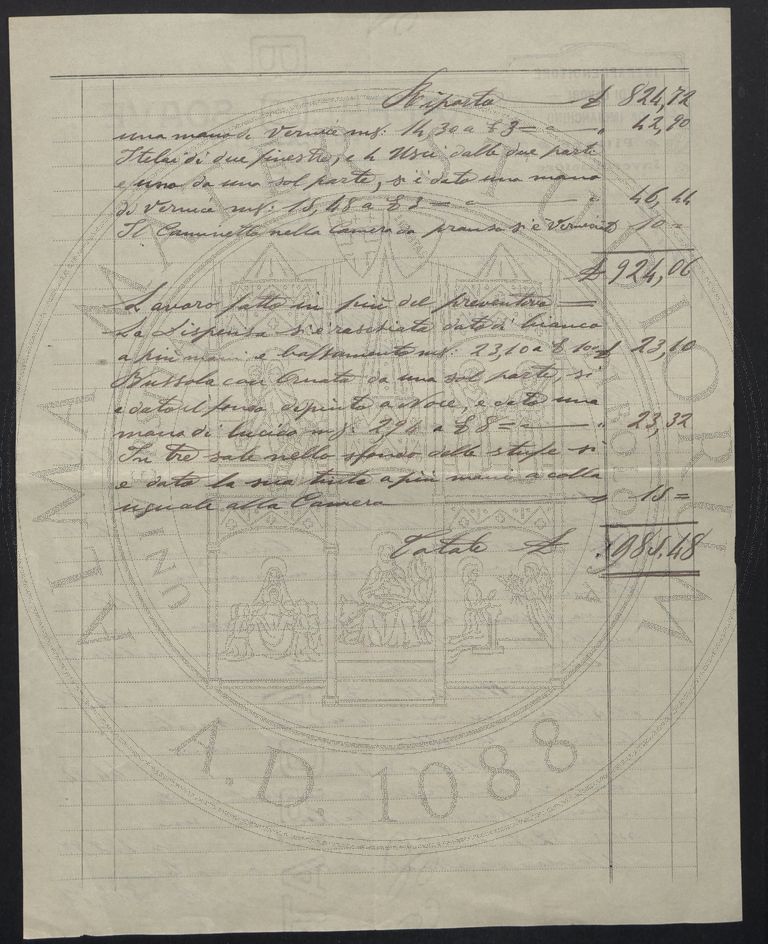 Riporto £ 824,72
una mano di vernice mq: 14,30 a £ 3 = " 42,90
Stelai di due finestre, e 4 Usci dalle due parti
e uno da una sol parte, si è dato una mano
di vernice mq: 15,48 a £ 3 = " " 46,44
Il Caminetto nella Camera da pranzo si è verniciat £ 10 =
£ 924,06
Lavoro fatto in più del preventivo =
La Dispensa si è raschiata dato di bianco
a più mani e bassamento mq: 23,10 a £ 1 £ 23,10
Bussola con Ornato da una sol parte, si
è dato il fondo dipinto a Noce, e dato una
mano di lucido mq: 2,91 a £ 8 = " 23,32
In tre sale nello sfondo delle stufe si
è dato la sua tinta a più mani a colla
uguale alla Camera " 15 =
Totale £ 985,48
ALMA MATER STUDIORUM
A.D. 1088